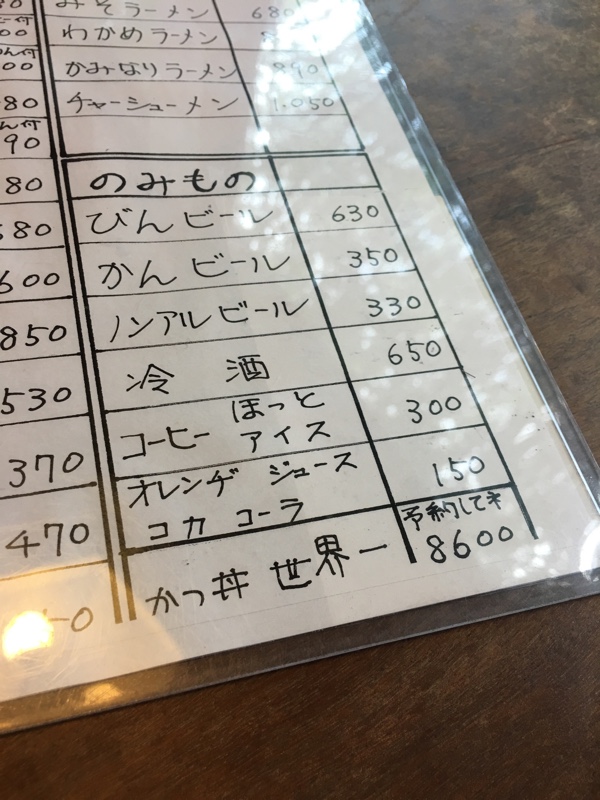 みそラーメン 680
わかめラーメン
かみなりラーメン 890
チャーシューメン 1,050
のみもの
びんビール 630
かんビール 350
ノンアルビール 330
冷酒 650
コーヒー ほっと アイス 300
オレンヂ ジュース
コカ コーラ 150
かつ丼 世界一 予約して 8600
00
00
80
90
80
580
600
850
530
370
470